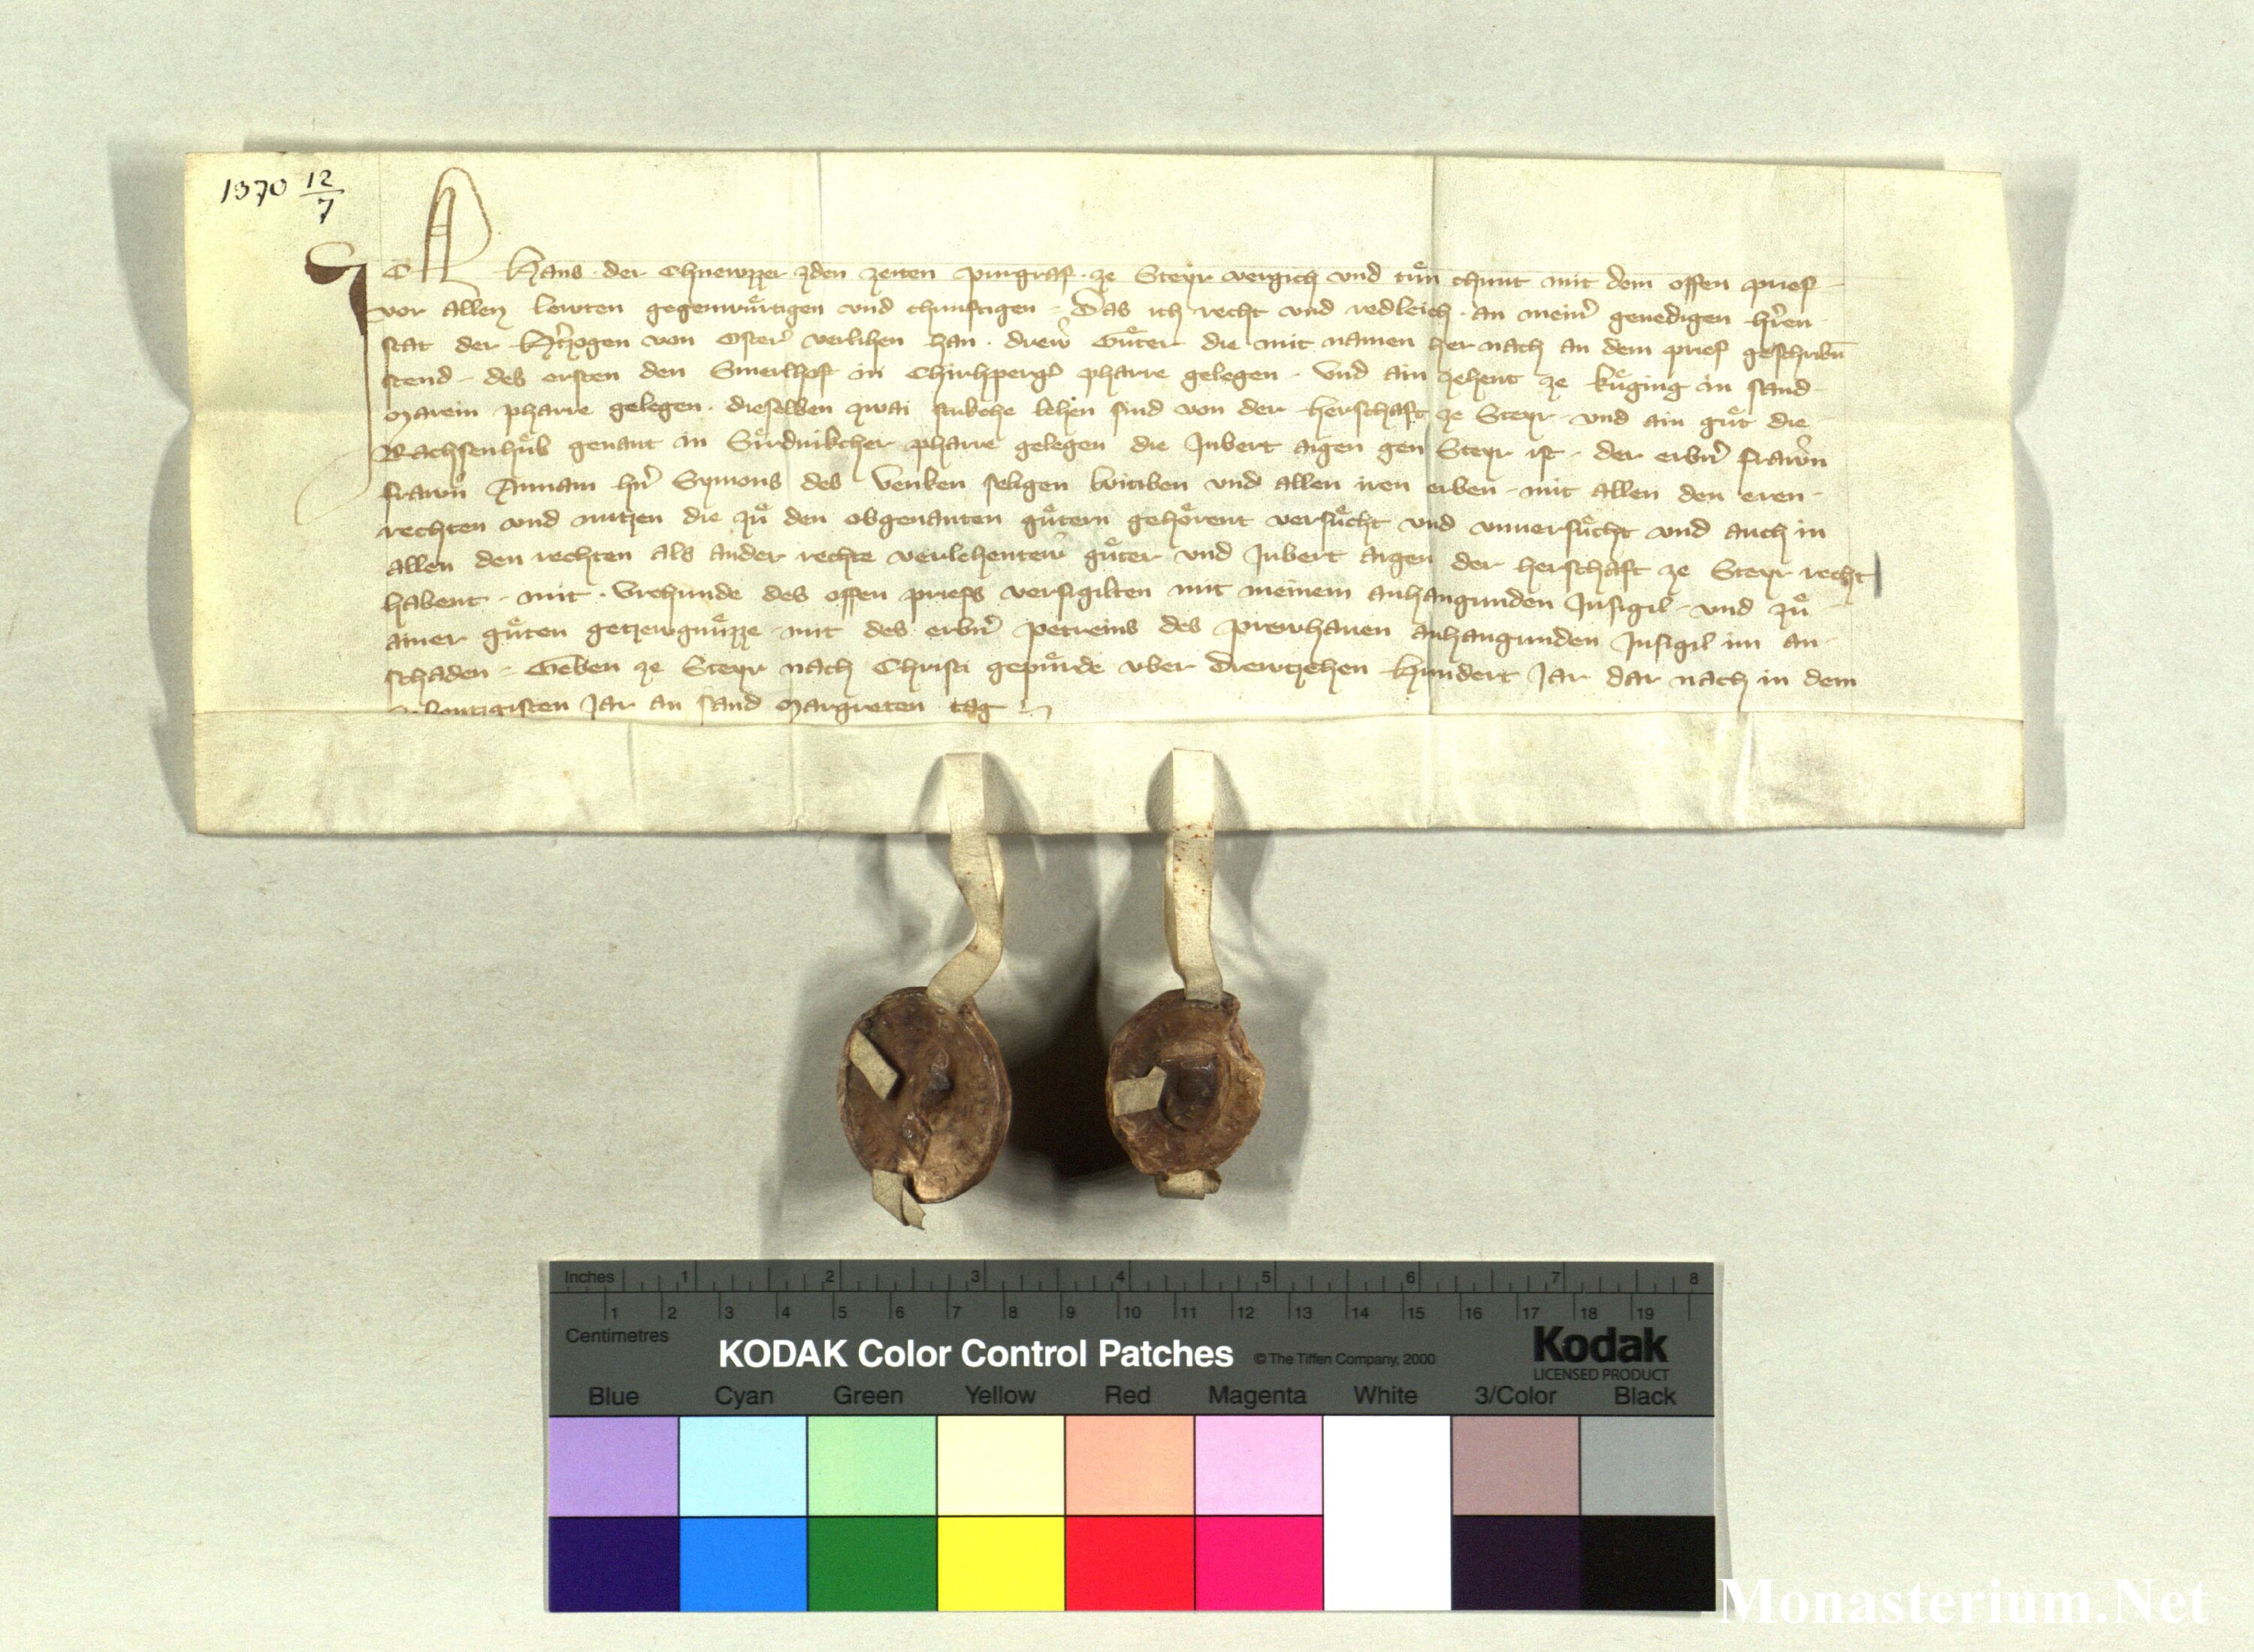 1370 12/7
Ich Hans der Chnewzzer zden zeiten purgraf ze Steyr vergich vnd tuͤn chunt mit dem offen prief
vor allen lewten gegenwuͤrtigen vnd chunftigen Das ich recht vnd redleich an meinr̄ genedigen hr̄en
stat der Hr̄tzogen von Osterr̄ verlihen han drew Guͤter die mit namen her nach an dem prief geschribn̄
stend des ersten den Smerlhof in Chirhperger̄ pharre gelegen vnd ain zehent ze Kuͤging in sand
Marein pharre gelegen dieselben zwai lehen sind von der herschaft ze Steyr vnd ain guͤt die
Rachsenhuͤb genant in Sirdnikcher pharre gelegen die Inbert aigen gen Steyr ist der erbn̄ frawn̄
frawn̄ Annam hn̄ Symons des Venken seligen witiben vnd allen iren erben mit allen den eren
rechten vnd nutzen die zuͤ den obgenanten guͤtern gehoͤrent versuͤcht vnd vnuersuͤcht vnd auch in
allen den rechten als ander rechte verlehentew guͤter vnd Inbert aigen der herschaft ze Steyr recht
habent mit vrchunde des offen priefs versigilten mit meinem anhangunden Insigil vnd zuͤ
ainer guͤten getzewgnuͤzze mit des erbn̄ petreins des prewhauen anhangunden Insigil im an
schaden Geben ze Steyr nach Christi gepuͤrde vber Drewtzehen Hundert Jar dar nach in dem
Jar an sand Margreten tag
Inches 1 2 3 4 5 6 7 8
1 2 3 4 5 6 7 8 9 10 11 12 13 14 15 16 17 18 19
Centimetres
KODAK Color Control Patches © The Tiffen Company, 2000 Kodak
LICENSED PRODUCT
Blue Cyan Green Yellow Red Magenta White 3/Color Black
Monasterium.Net